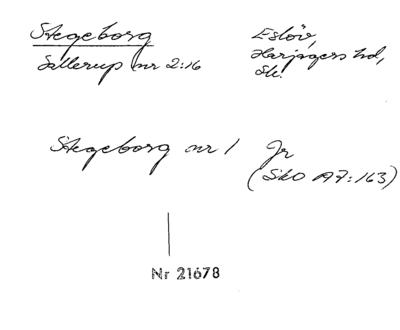 Stegeborg
Sallerup nr 2:16
Eslöv,
Harjagers hd,
Sk.
Stegeborg nr 1 Jr
(SkO A7:163)
Nr 21678